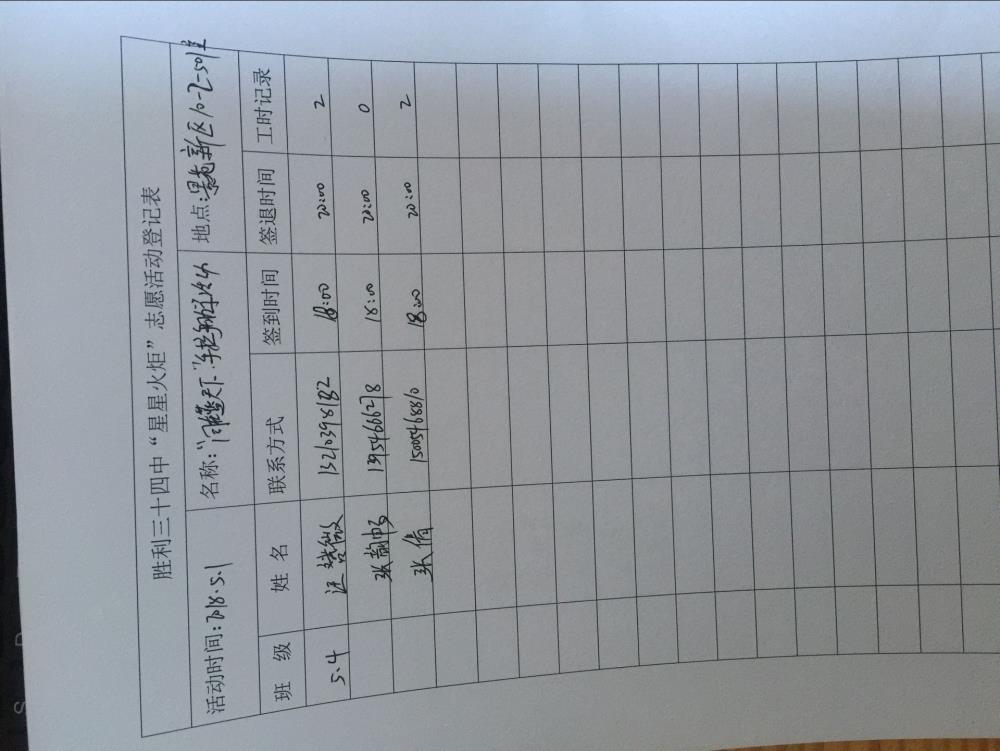 胜利三十四中“星星火炬”志愿活动登记表
活动时间：2018.5.1 名称：“ 天下” 地点：新区10-2-501室
班 级 姓 名 联系方式 签到时间 签退时间 工时记录
5.4 汪 薇 18:00 20:00 2
张 1395466278 18:00 20:00 0
张倩 1500546880 18:00 20:00 2